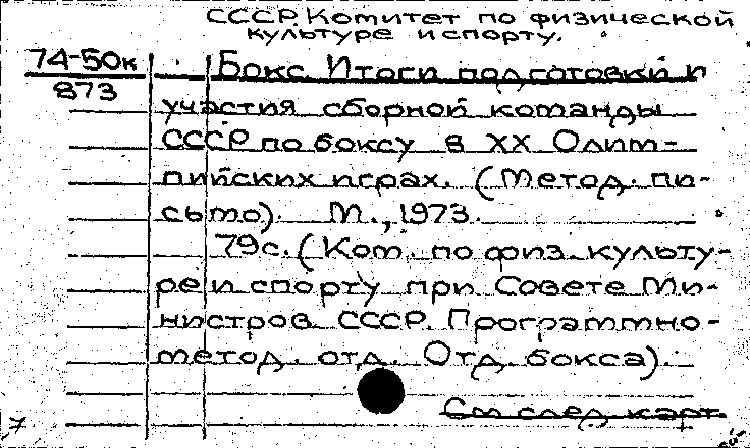 СССР. Комитет по физической
культуре и спорту.
74-50к
873
Бокс. Итоги подготовки и
участия сборной команды
СССР по боксу в XX Олим-
пийских играх. (Метод. пи-
сьмо). М., 1973.
79с. (Ком. по физ. культу-
ре и спорту при Совете Ми-
нистров СССР. Программно-
метод. отд. Отд. бокса).
См след. карт.
7